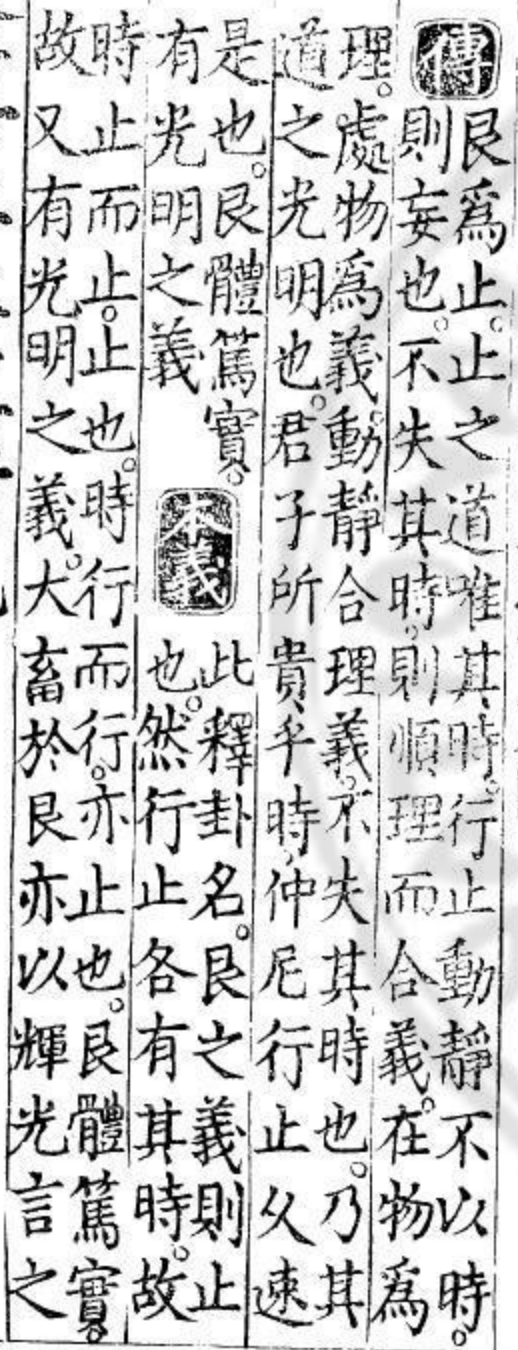 傳
艮爲止。止之道唯其時。行止動靜不以時。
則妄也。不失其時。則順理而合義。在物爲
理。處物爲義。動靜合理義。不失其時也。乃其
道之光明也。君子所貴乎時。仲尼行止久速
是也。艮體篤實。
有光明之義
本義
此釋卦名。艮之義則止
也。然行止各有其時。故
時止而止。止也。時行而行。亦止也。艮體篤實。
故又有光明之義。大畜於艮亦以輝光言之